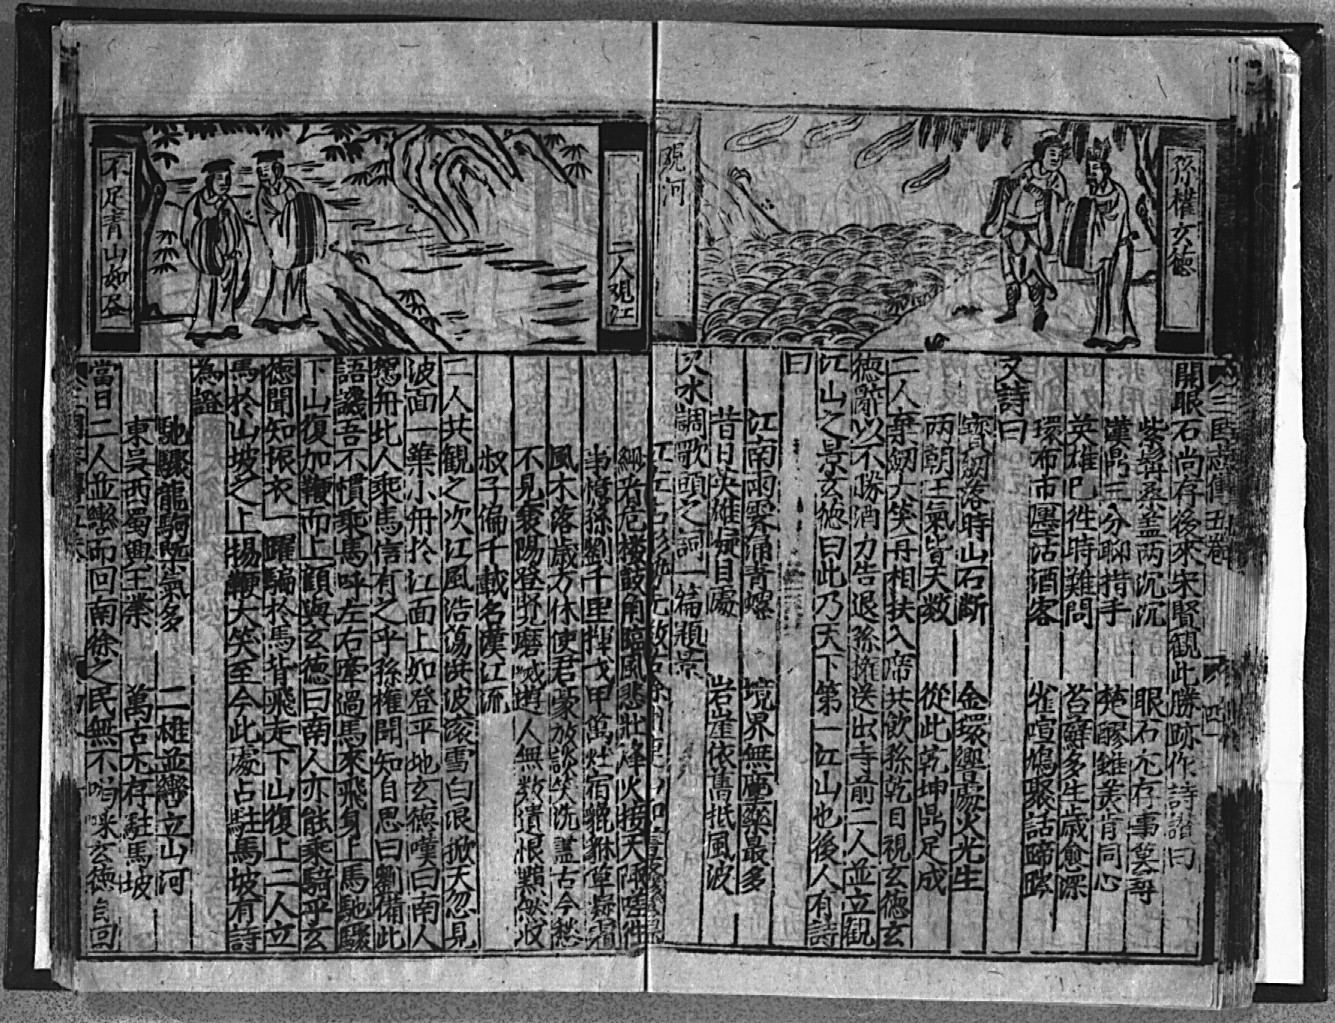 孫權玄德
觀河
開眼石尚存後來宋賢觀此勝跡作詩讃曰
紫髯桑盖兩沉沉 眼石尤存事莫尋
漢鼎三分聊措手 楚醪雖美肯同心
英雄已徃時難問 苔蘚多生歲愈深
環布市廛沽酒客 雀喧鳩聚話蹄涔
又詩曰
寶劒落時山石斷 金環響處火光生
兩朝王氣皆天數 從此乾坤鼎足成
二人棄劒大笑再相扶入席共飲孫乾目視玄德玄
德辭以不勝酒力告退孫權送出寺前二人並立觀
江山之景玄德曰此乃天下第一江山也後人有詩
曰
江南雨霽涌青螺 境界無塵樂最多
昔日英雄凝目處 岩崖依舊抵風波
又水調歌頭之詞一篇題景
二人觀江
不足青山如
危樓鼓角臨風悲壯烽火接天
事憶孫劉千里揮戈甲萬灶宿貔貅草凝霜
風木落歲方休使君豪放談笑洗盡古今愁
不見襄陽登覽磨滅遊人無數遺恨黯然收
叔子偏千載名漢江流
二人共觀之次江風浩蕩洪波滚雪白浪掀天忽見
波面一葉小舟於江面上如登平地玄德嘆曰南人
駕舟北人乘馬信有之乎孫權聞知自思曰劉備此
語譏吾不慣乘馬呼左右牽過馬來飛身上馬馳驟
下山復加鞭而上顧與玄德曰南人亦能乘騎乎玄
德聞知撩衣一躍騙於馬背飛走下山復上二人立
馬於山坡之上揚鞭大笑至今此處占駐馬坡有詩
為證
馳驟龍駒氣多 二雄並轡立山河
東吳西蜀興王業 萬古尤存駐馬坡
當日二人並轡而回南徐之民無不玄德自回